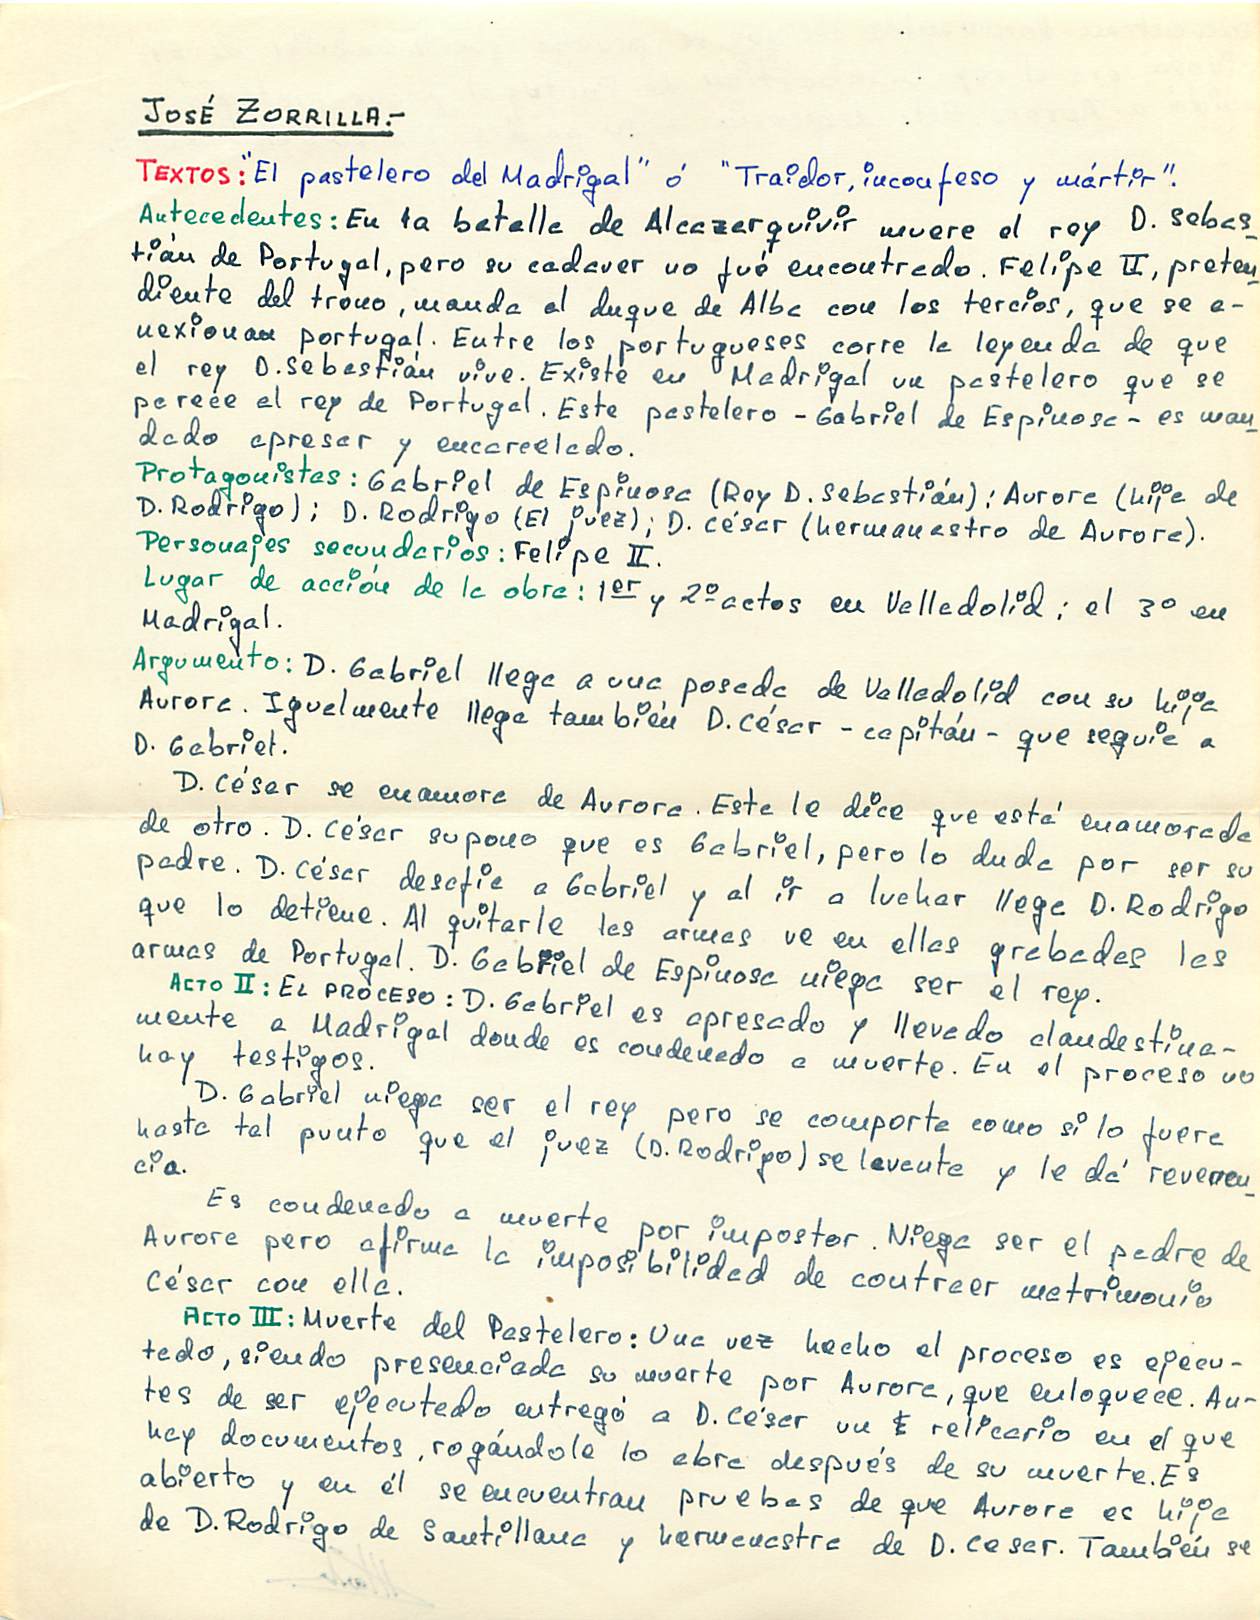 JOSÉ ZORRILLA.-
TEXTOS: "El pastelero del Madrigal" ó "Traidor, inconfeso y mártir".
Antecedentes: En la batalla de Alcazarquivir muere el rey D. Sebas_
tián de Portugal, pero su cadaver no fué encontrado. Felipe II, preten_
diente del trono, manda al duque de Alba con los tercios, que se a-
nexionan portugal. Entre los portugueses corre la leyenda de que
el rey D. Sebastián vive. Existe en Madrigal un pastelero que se
parece al rey de Portugal. Este pastelero - Gabriel de Espinosa - es man_
dado apresar y encarcelado.
Protagonistas: Gabriel de Espinosa (Rey D. Sebastián); Aurora (hija de
D. Rodrigo); D. Rodrigo (El juez); D. César (hermanastro de Aurora).
Personajes secundarios: Felipe II.
Lugar de acción de la obra: 1er y 2º actos en Valladolid; el 3º en
Madrigal.
Argumento: D. Gabriel llega a una posada de Valladolid con su hija
Aurora. Igualmente llega también D. César - capitán - que seguía a
D. Gabriel.
D. César se enamora de Aurora. Esta le dice que está enamorada
de otro. D. César supono que es Gabriel, pero lo duda por ser su
padre. D. César desafía a Gabriel y al ir a luchar llega D. Rodrigo
que lo detiene. Al quitarle las armas ve en ellas grabadas las
armas de Portugal. D. Gabriel de Espinosa niega ser el rey.
ACTO II: EL PROCESO: D. Gabriel es apresado y llevado clandestina-
mente a Madrigal donde es condenado a muerte. En el proceso no
hay testigos.
D. Gabriel niega ser el rey pero se comporta como si lo fuera
hasta tal punto que el juez (D. Rodrigo) se levanta y le dá reveren_
cia.
Es condenado a muerte por impostor. Niega ser el padre de
Aurora pero afirma la imposibilidad de contraer matrimonio
César con ella.
ACTO III: Muerte del Pastelero: Una vez hecho el proceso es ejecu-
tado, siendo presenciada su muerte por Aurora, que enloquece. An-
tes de ser ejecutado entregó a D. César un relicario en el que
hay documentos, rogándole lo abra después de su muerte. Es
abierto y en él se encuentran pruebas de que Aurora es hija
de D. Rodrigo de Santillana y hermanastra de D. Cesar. También se